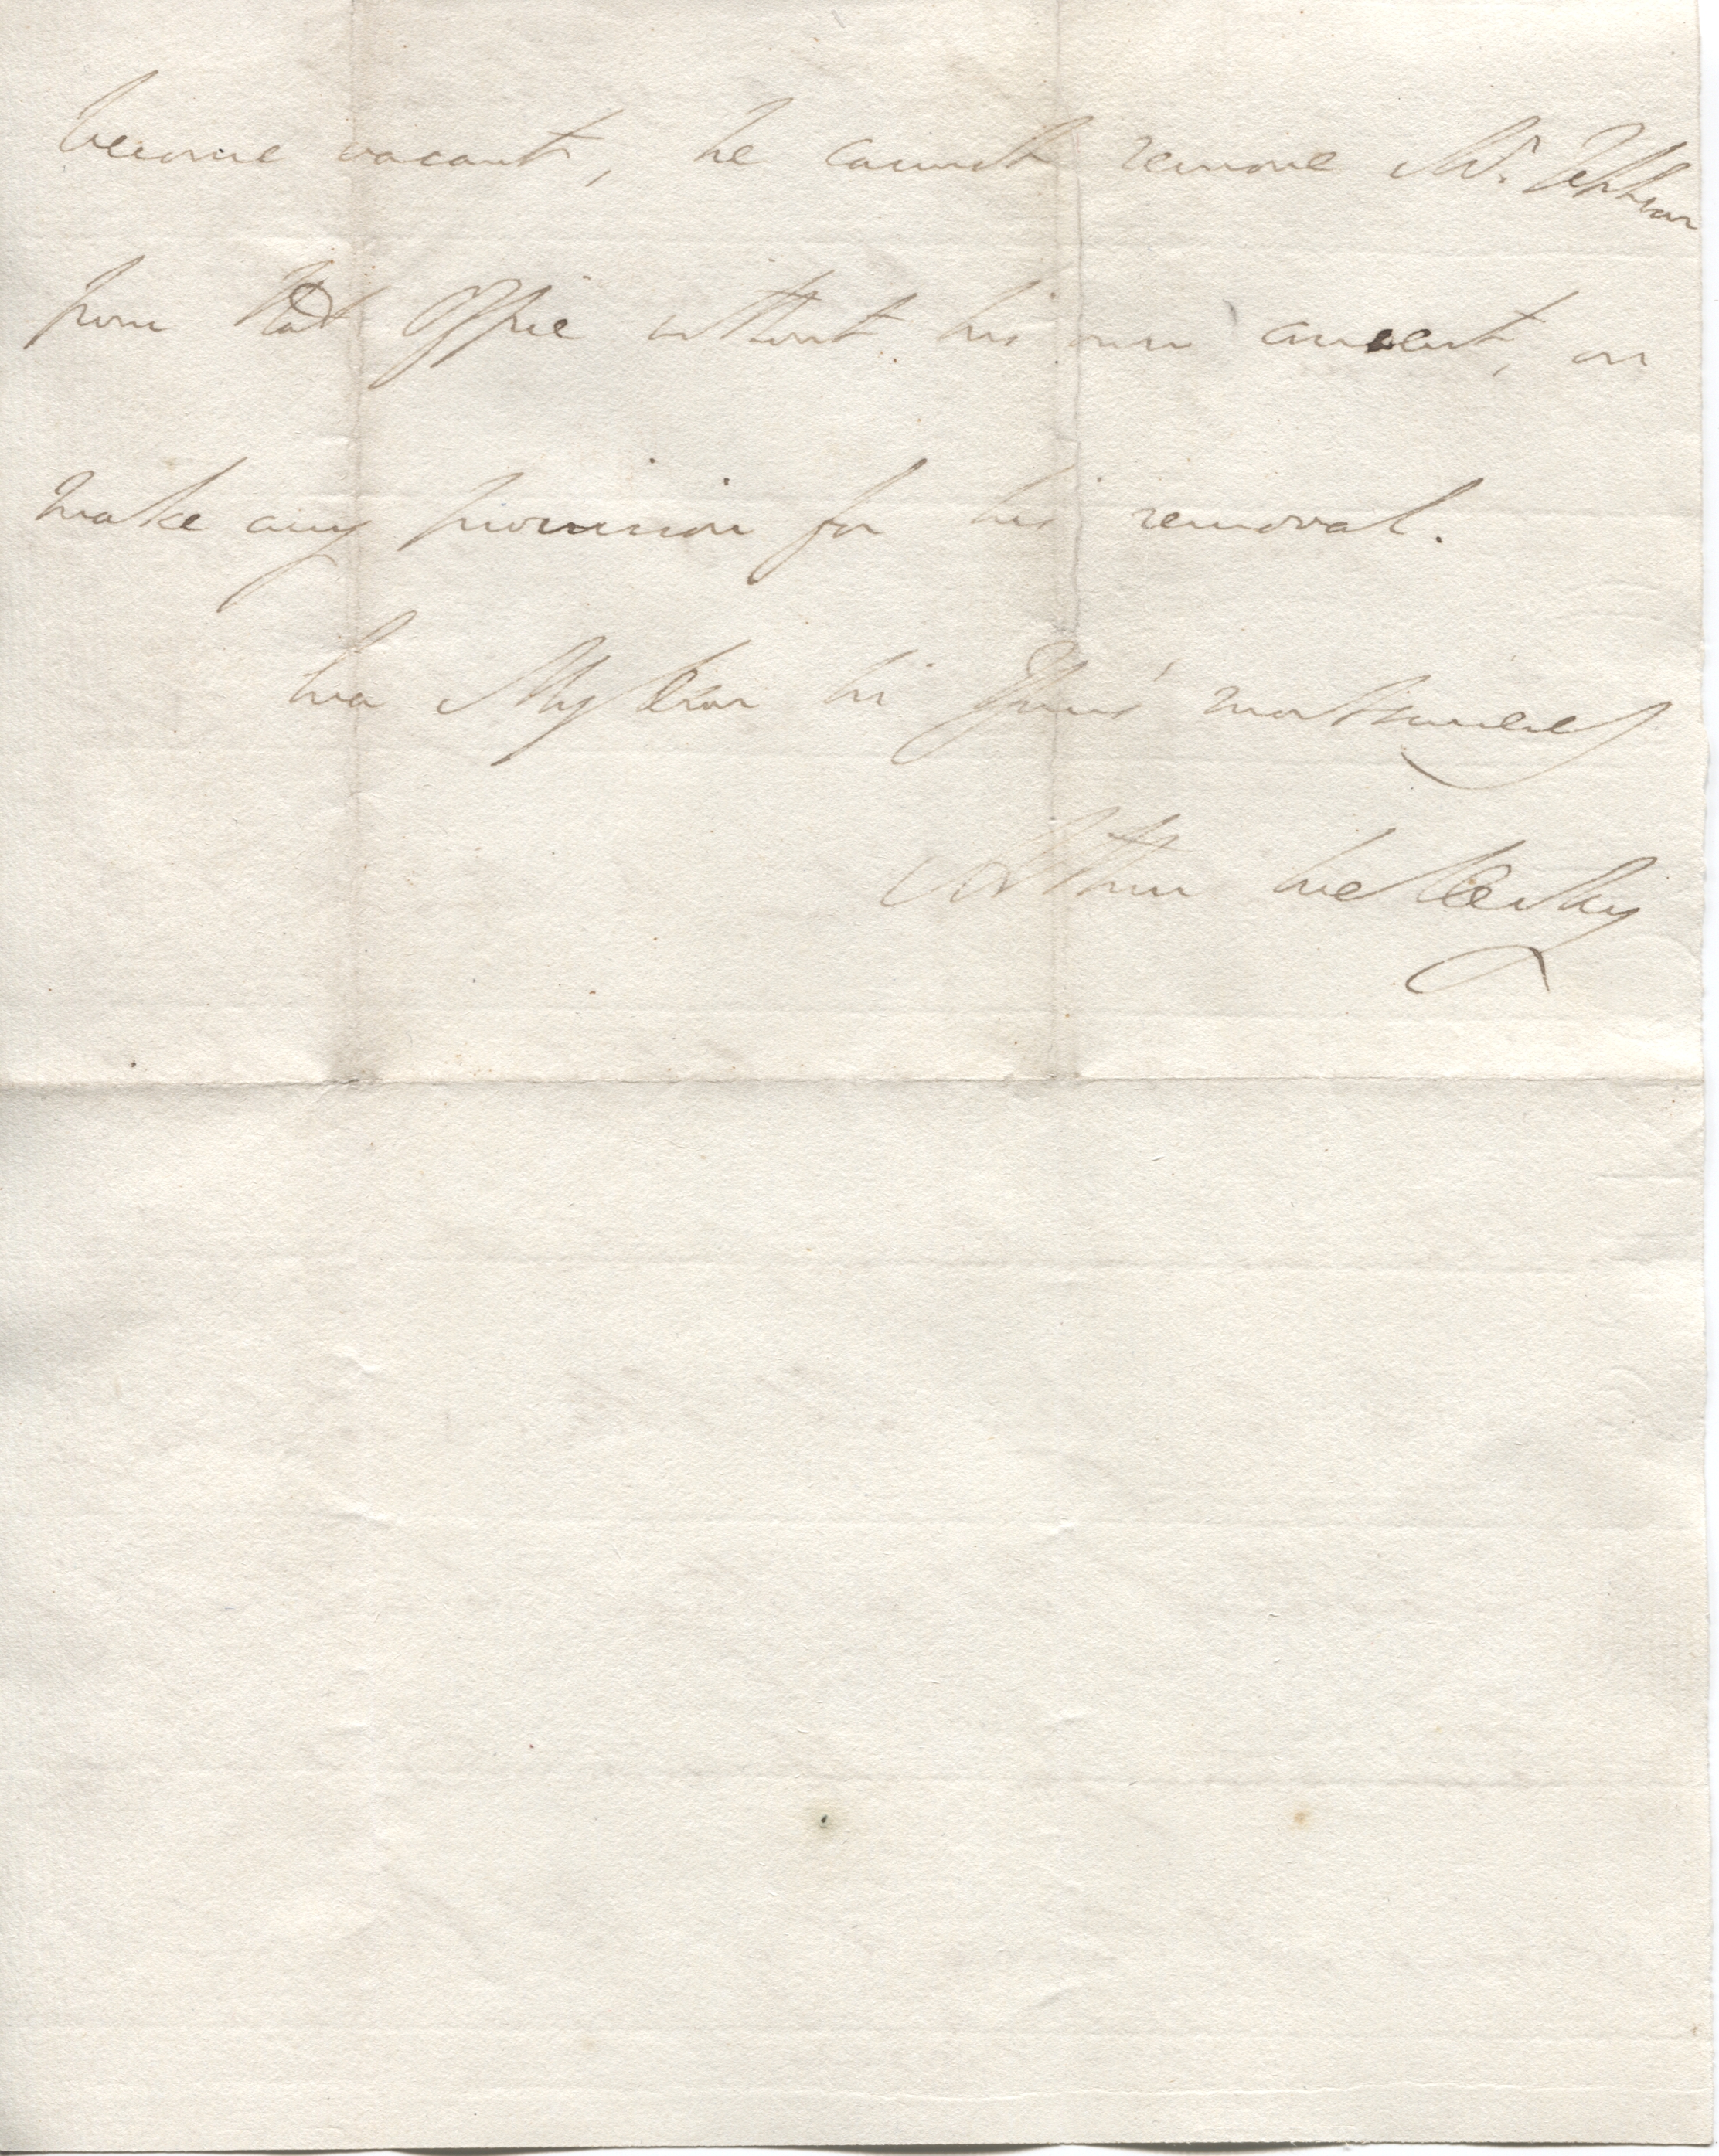 become vacant, he cannot remove Mr.
from that Office without his own consent, or
make any provision for his removal.
Ever My dear Sir Yours most sincerely
Arthur Wellesley